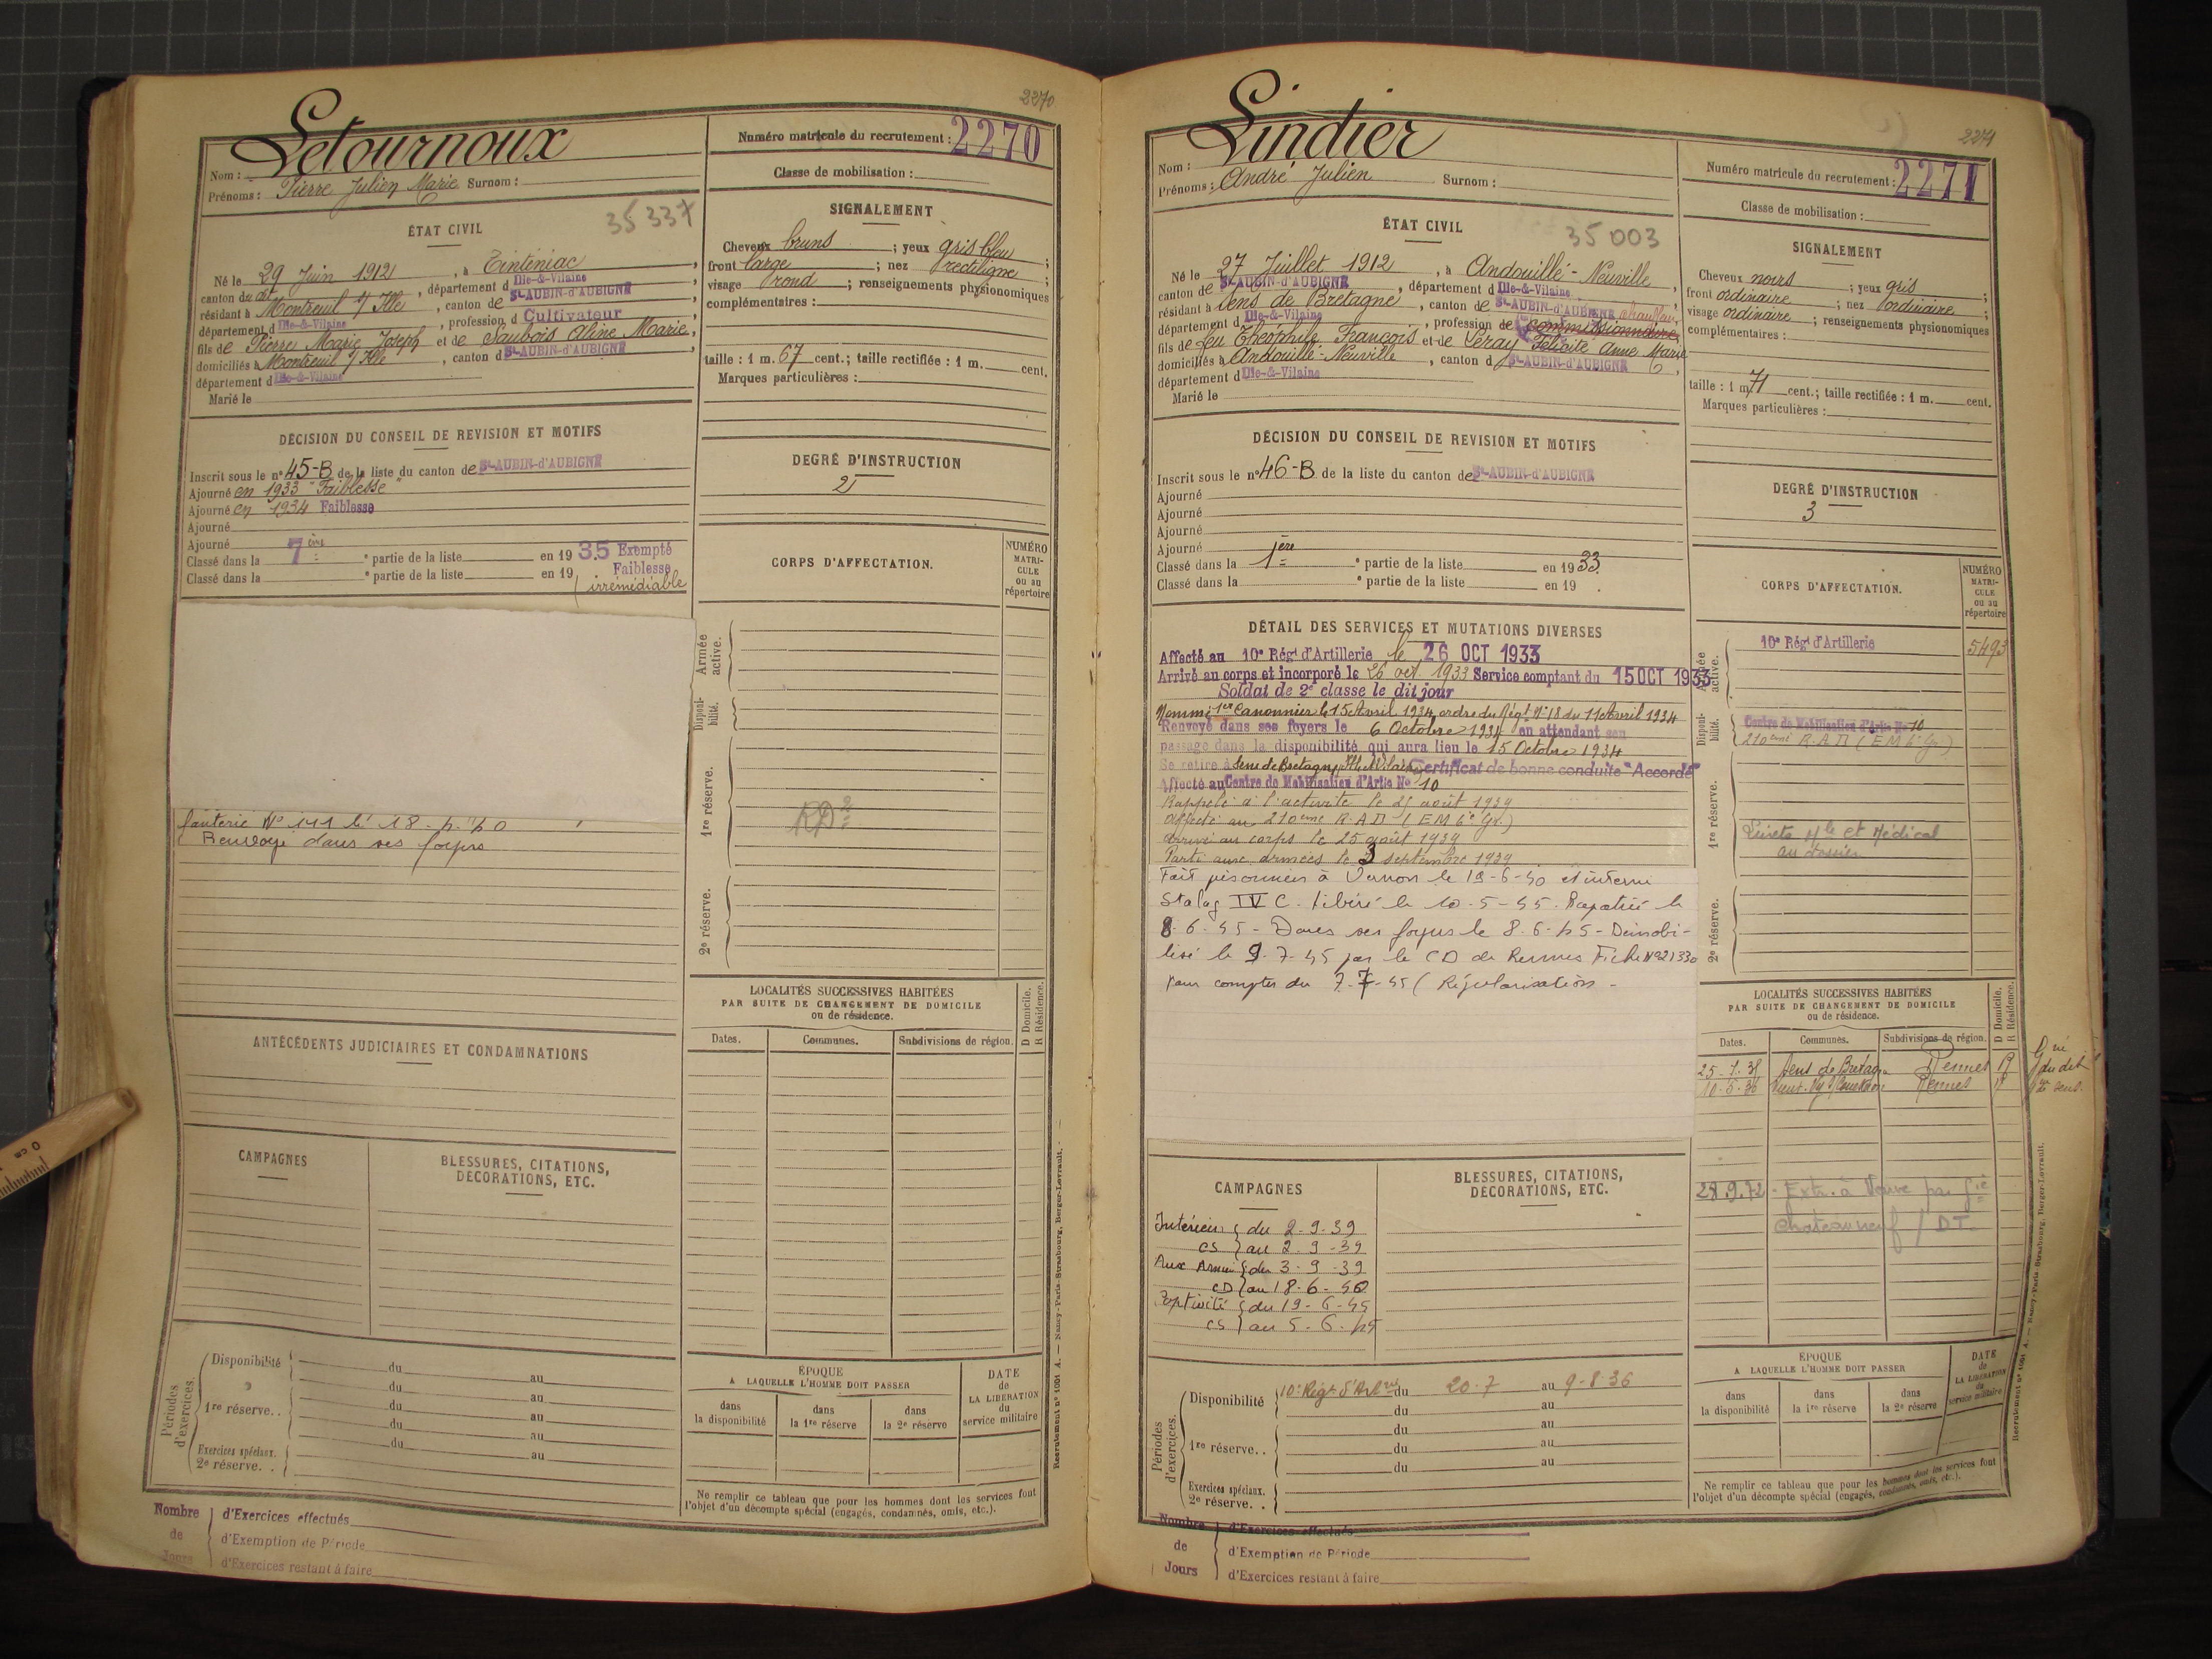 2270
Letournoux
Nom :
Prénoms : Pierre Julien Marie Surnom :
Numéro matricule du recrutement : 2270
Classe de mobilisation :
35 337
ÉTAT CIVIL
Né le 29 Juin 1912, à Tinténiac,
canton du dit, département d Ille-&-Vilaine,
résidant à Montreuil s/ Ille, canton de St-AUBIN-d'AUBIGNÉ,
département d Ille-&-Vilaine, profession d Cultivateur
fils de Pierre Marie Joseph et de Saubois Aline Marie,
domiciliés à Montreuil s/ Ille, canton d St-AUBIN-d'AUBIGNÉ,
département d Ille-&-Vilaine
Marié le
SIGNALEMENT
Cheveux bruns ; yeux gris bleu ;
front large ; nez rectiligne ;
visage rond ; renseignements physionomiques
complémentaires :
taille : 1 m. 67 cent.; taille rectifiée : 1 m. cent.
Marques particulières :
DÉCISION DU CONSEIL DE REVISION ET MOTIFS
Inscrit sous le n° 45-B de la liste du canton de St-AUBIN-d'AUBIGNÉ
Ajourné en 1933 "Faiblesse"
Ajourné en 1934 Faiblesse
Ajourné
Ajourné
Classé dans la 7 ème e partie de la liste en 19 35 Exempté
Faiblesse
Classé dans la e partie de la liste en 19
irrémédiable
DEGRÉ D'INSTRUCTION
2
CORPS D'AFFECTATION.
NUMÉRO MATRICULE ou au répertoire
Armée active.
Disponibilité.
1re réserve.
2e réserve.
fanterie N° 141 le 18-4-40
Renvoyé dans ses foyers
LOCALITÉS SUCCESSIVES HABITÉES
PAR SUITE DE CHANGEMENT DE DOMICILE
ou de résidence.
D Domicile.
R Résidence.
Dates. Communes. Subdivisions de région.
ANTÉCÉDENTS JUDICIAIRES ET CONDAMNATIONS
CAMPAGNES
BLESSURES, CITATIONS,
DÉCORATIONS, ETC.
Périodes d'exercices.
Disponibilité du au
du au
1re réserve.. du au
du au
Exercices spéciaux. du au
2e réserve. .
ÉPOQUE
A LAQUELLE L'HOMME DOIT PASSER
dans la disponibilité
dans la 1re réserve
dans la 2e réserve
DATE de LA LIBÉRATION du service militaire
Ne remplir ce tableau que pour les hommes dont les services font
l'objet d'un décompte spécial (engagés, condamnés, omis, etc.).
Recrutement n° 1001 A. — Nancy-Paris-Strasbourg, Berger-Levrault.
Nombre de Jours
d'Exercices effectués
d'Exemption de Période
d'Exercices restant à faire
2271
Lindier
Nom :
Prénoms : André Julien Surnom :
Numéro matricule du recrutement : 2271
Classe de mobilisation :
35 003
ÉTAT CIVIL
Né le 27 Juillet 1912, à Andouillé-Neuville,
canton de St-AUBIN-d'AUBIGNÉ, département d Ille-&-Vilaine,
résidant à Sens de Bretagne, canton de St-AUBIN-d'AUBIGNÉ chauffeur
département d Ille-&-Vilaine, profession de commissionnaire,
fils de feu Théophile François et de Leray Félicité Anne Marie
domiciliés à Andouillé-Neuville, canton d St-AUBIN-d'AUBIGNÉ,
département d Ille-&-Vilaine
Marié le
SIGNALEMENT
Cheveux noirs ; yeux gris ;
front ordinaire ; nez ordinaire ;
visage ordinaire ; renseignements physionomiques
complémentaires :
taille : 1 m 71 cent.; taille rectifiée : 1 m. cent.
Marques particulières :
DÉCISION DU CONSEIL DE REVISION ET MOTIFS
Inscrit sous le n° 46-B de la liste du canton de St-AUBIN-d'AUBIGNÉ
Ajourné
Ajourné
Ajourné
Ajourné
Classé dans la 1ère e partie de la liste en 19 33.
Classé dans la e partie de la liste en 19 .
DEGRÉ D'INSTRUCTION
3
DÉTAIL DES SERVICES ET MUTATIONS DIVERSES
Affecté au 10e Régt d'Artillerie le 26 OCT 1933
Arrivé au corps et incorporé le 26 oct. 1933 Service comptant du 15 OCT 1933
Soldat de 2e classe le dit jour
Nommé 1er Canonnier le 15 Avril 1934 ordre du Régt N° 18 du 11 Avril 1934
Renvoyé dans ses foyers le 6 Octobre 1934 en attendant son
passage dans la disponibilité qui aura lieu le 15 Octobre 1934
Se retire à Sens de Bretagne Certificat de bonne conduite "Accordé"
Affecté au Centre de Mobilisation d'Artie No 10
Rappelé à l'activité le 25 août 1939
Affecté au 210ème R.A.D (EM 6e Gr.)
Arrivé au corps le 25 août 1939
Parti aux armées le 3 septembre 1939
Fait prisonnier à Vernon le 19-6-40 et interné
Stalag IV C. Libéré le 10-5-45. Rapatrié le
8-6-45 - Dans ses foyers le 8-6-45 - Démobi-
lisé le 9-7-45 par le CD de Rennes Fiche N° 21330
pour compter du 7-7-45 (Régularisation -
CORPS D'AFFECTATION.
NUMÉRO MATRICULE ou au répertoire
Armée active.
10e Régt d'Artillerie 5493
Disponibilité.
Centre de Mobilisation d'Artie No 10
210ème R.A.D (EM 6e Gr.)
1re réserve.
Livrets Mle et Médical
au dossier
2e réserve.
LOCALITÉS SUCCESSIVES HABITÉES
PAR SUITE DE CHANGEMENT DE DOMICILE
ou de résidence.
D Domicile.
R Résidence.
Dates. Communes. Subdivisions de région.
Sens de Bretagne Rennes R
10-5-36 Rennes R
28.9.72 - Extr. à Veuve par Gie
Chateauneuf / DT-
CAMPAGNES
BLESSURES, CITATIONS,
DÉCORATIONS, ETC.
Intérieur du 2-9-39
CS au 2-9-39
Aux Armées du 3-9-39
CD au 18-6-40
Captivité du 19-6-45
CS au 5-6-45
Périodes d'exercices.
Disponibilité 10e Régt d'Artrie du 20-7 au 9-8-36
du au
du au
1re réserve.. du au
du au
Exercices spéciaux.
2e réserve. .
ÉPOQUE
A LAQUELLE L'HOMME DOIT PASSER
dans la disponibilité
dans la 1re réserve
dans la 2e réserve
DATE de LA LIBÉRATION du service militaire
Ne remplir ce tableau que pour les hommes dont les services font
l'objet d'un décompte spécial (engagés, condamnés, omis, etc.).
Recrutement n° 1001 A. — Nancy-Paris-Strasbourg, Berger-Levrault.
Nombre de Jours
d'Exercices effectués
d'Exemption de Période
d'Exercices restant à faire